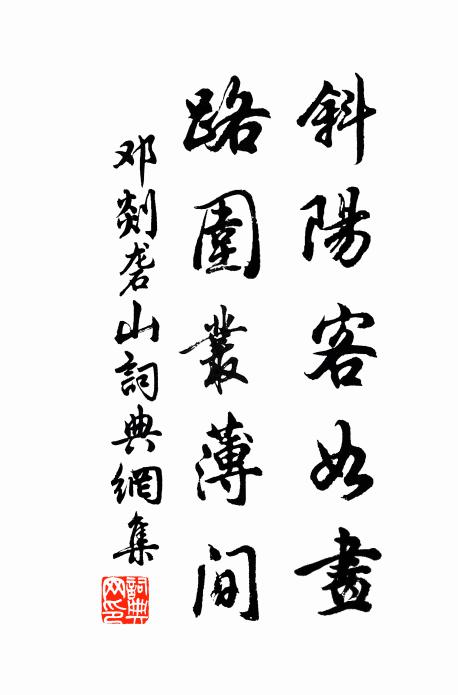 斜陽客如畫
路圍叢薄間
邓剡砻山詞典網集
詞典網印